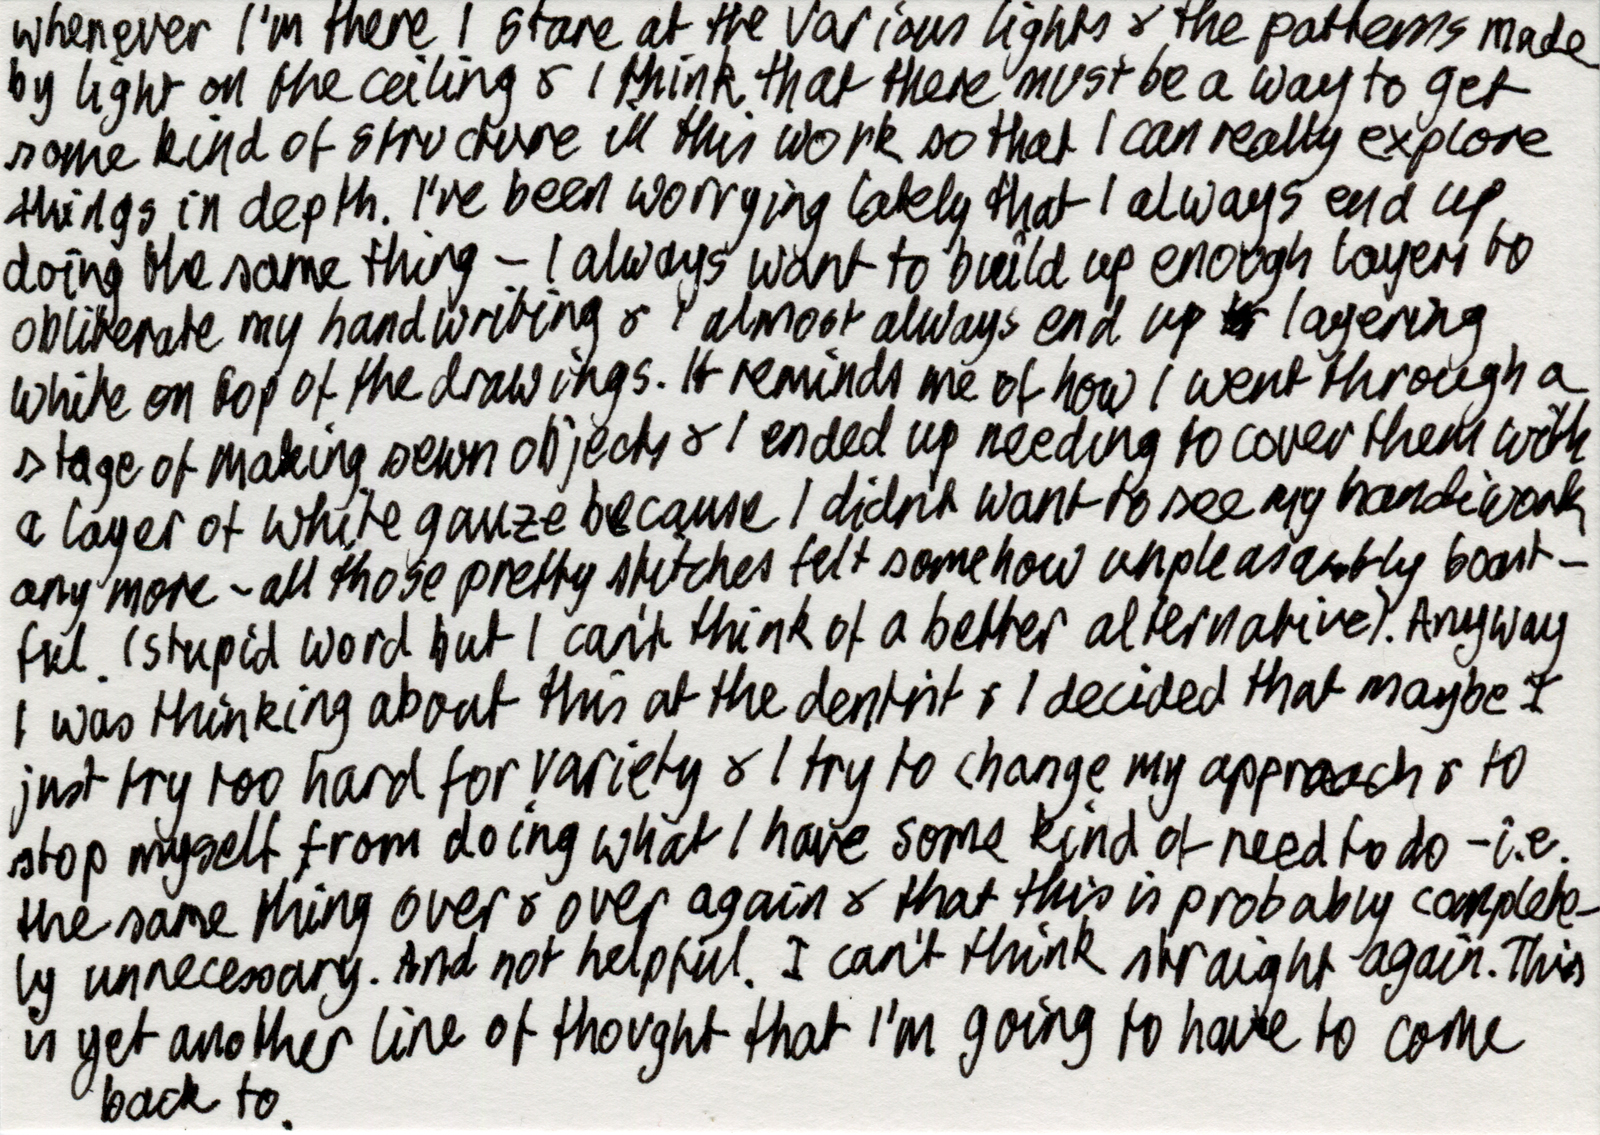 whenever I'm there I stare at the various lights & the patterns made
by light on the ceiling & I think that there must be a way to get
some kind of structure in this work so that I can really explore
things in depth. I've been worrying lately that I always end up
doing the same thing – I always want to build up enough layers to
obliterate my handwriting & I almost always end up layering
white on top of the drawings. It reminds me of how I went through a
stage of making sewn objects & I ended up needing to cover them with
a layer of white gauze because I didn't want to see my handiwork
any more – all those pretty stitches felt somehow unpleasantly boast-
ful. (stupid word but I can't think of a better alternative). Anyway
I was thinking about this at the dentist & I decided that maybe I
just try too hard for variety & I try to change my approach & to
stop myself from doing what I have some kind of need to do – i.e.
the same thing over & over again & that this is probably complete-
ly unnecessary. And not helpful. I can't think straight again. This
is yet another line of thought that I'm going to have to come
back to.